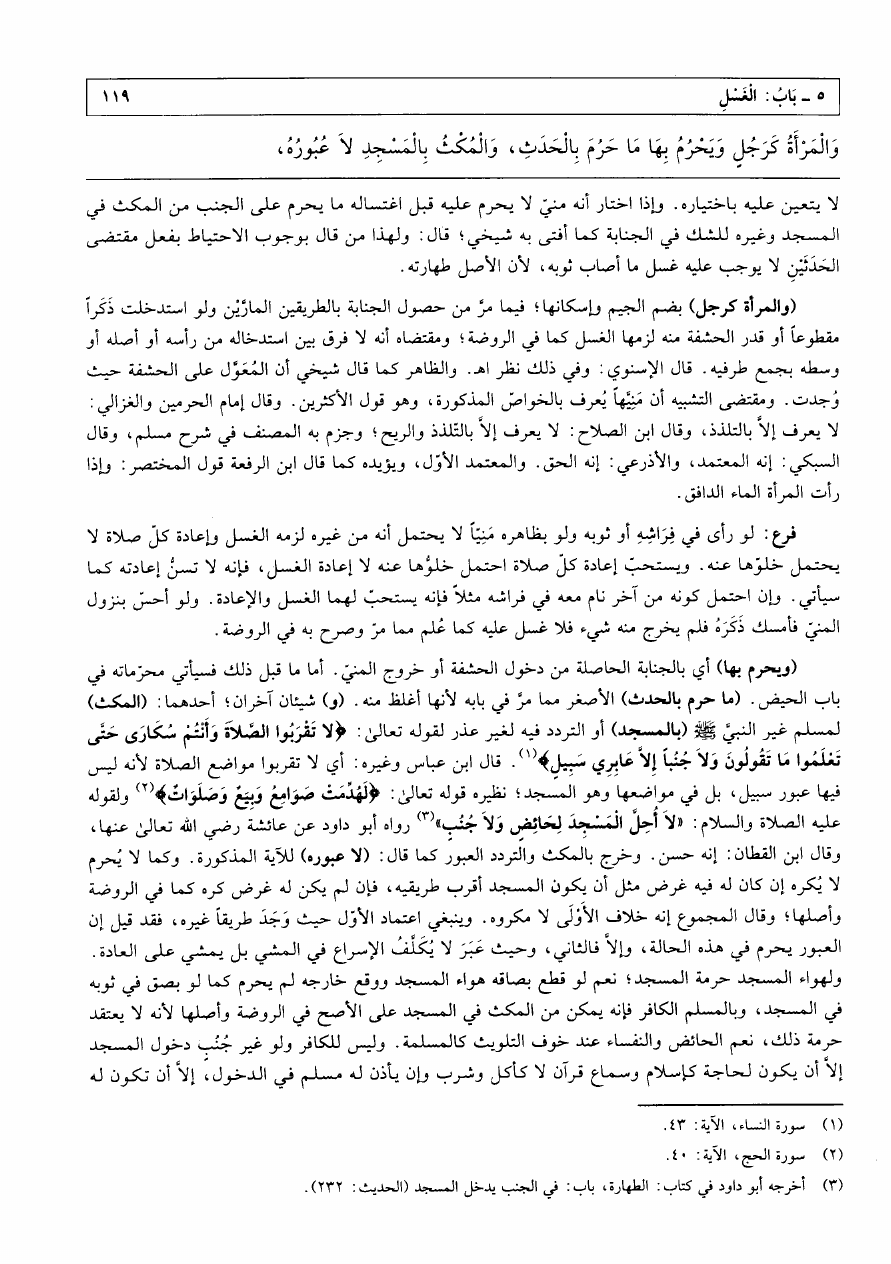 ٥ - بَابُ: الْغَسْلِ ١١٩
وَالْمَرْأَةُ كَرَجُلٍ وَيَحْرُمُ بِهَا مَا حَرُمَ بِالْحَدَثِ، وَالْمُكْثُ بِالْمَسْجِدِ لاَ عُبُورُهُ،
لا يتعين عليه باختياره. وإذا اختار أنه منيّ لا يحرم عليه قبل اغتساله ما يحرم على الجنب من المكث في
المسجد وغيره للشك في الجنابة كما أفتى به شيخي؛ قال: ولهذا من قال بوجوب الاحتياط بفعل مقتضى
الحَدَثَيْنِ لا يوجب عليه غسل ما أصاب ثوبه، لأن الأصل طهارته.
(والمرأة كرجل) بضم الجيم وإسكانها؛ فيما مرَّ من حصول الجنابة بالطريقين المارَّيْن ولو استدخلت ذَكَراً
مقطوعاً أو قدر الحشفة منه لزمها الغسل كما في الروضة؛ ومقتضاه أنه لا فرق بين استدخاله من رأسه أو أصله أو
وسطه بجمع طرفيه. قال الإسنوي: وفي ذلك نظر اهـ. والظاهر كما قال شيخي أن المُعَوَّل على الحشفة حيث
وُجدت. ومقتضى التشبيه أن مَنِيَّها يُعرف بالخواصّ المذكورة، وهو قول الأكثرين. وقال إمام الحرمين والغزالي:
لا يعرف إلاَّ بالتلذذ، وقال ابن الصلاح: لا يعرف إلاَّ بالتّلذذ والريح؛ وجزم به المصنف في شرح مسلم، وقال
السبكي: إنه المعتمد، والأذرعي: إنه الحق. والمعتمد الأوّل، ويؤيده كما قال ابن الرفعة قول المختصر: وإذا
رأت المرأة الماء الدافق.
فرع: لو رأى في فِرَاشِهِ أو ثوبه ولو بظاهره مَنِيّاً لا يحتمل أنه من غيره لزمه الغسل وإعادة كلّ صلاة لا
يحتمل خلوّها عنه. ويستحبّ إعادة كلّ صلاة احتمل خلوُّها عنه لا إعادة الغسل، فإنه لا تسنُّ إعادته كما
سيأتي. وإن احتمل كونه من آخر نام معه في فراشه مثلاً فإنه يستحبّ لهما الغسل والإعادة. ولو أحسّ بنزول
المنيّ فأمسك ذَكَرَهُ فلم يخرج منه شيء فلا غسل عليه كما عُلم مما مرّ وصرح به في الروضة.
(ويحرم بها) أي بالجنابة الحاصلة من دخول الحشفة أو خروج المنيّ. أما ما قبل ذلك فسيأتي محرّماته في
باب الحيض. (ما حرم بالحدث) الأصغر مما مرَّ في بابه لأنها أغلظ منه. (و) شيئان آخران؛ أحدهما: (المكث)
لمسلم غير النبيَّ ﷺ (بالمسجد) أو التردد فيه لغير عذر لقوله تعالىٰ: ﴿لا تَقْرَبُوا الصَّلاَةَ وَأَنْتُمْ سُكَارَى حَتَّى
تَعْلَمُوا مَا تَقُولُونَ وَلاَ جُنُباً إِلاَّ عَابِرِي سَبِيلٍ﴾(١). قال ابن عباس وغيره: أي لا تقربوا مواضع الصلاة لأنه ليس
فيها عبور سبيل، بل في مواضعها وهو المسجد؛ نظيره قوله تعالىٰ: ﴿لَهُدِّمَتْ صَوَامِعُ وَبِيَعٌ وَصَلَوَاتٌ﴾(٢) ولقوله
عليه الصلاة والسلام: «لاَ أُحِلُّ الْمَسْجِدَ لِحَائِضٍ وَلاَ جُنُبٍ»(٣) رواه أبو داود عن عائشة رضي الله تعالىٰ عنها،
وقال ابن القطان: إنه حسن. وخرج بالمكث والتردد العبور كما قال: (لا عبوره) للآية المذكورة. وكما لا يُحرم
لا يُكره إن كان له فيه غرض مثل أن يكون المسجد أقرب طريقيه، فإن لم يكن له غرض كره كما في الروضة
وأصلها؛ وقال المجموع إنه خلاف الأَوْلَى لا مكروه. وينبغي اعتماد الأوّل حيث وَجَدَ طريقاً غيره، فقد قيل إن
العبور يحرم في هذه الحالة، وإلاَّ فالثاني، وحيث عَبَرَ لا يُكَلَّفُ الإسراع في المشي بل يمشي على العادة.
ولهواء المسجد حرمة المسجد؛ نعم لو قطع بصاقه هواء المسجد ووقع خارجه لم يحرم كما لو بصق في ثوبه
في المسجد، وبالمسلم الكافر فإنه يمكن من المكث في المسجد على الأصح في الروضة وأصلها لأنه لا يعتقد
حرمة ذلك، نعم الحائض والنفساء عند خوف التلويث كالمسلمة. وليس للكافر ولو غير جُنُبٍ دخول المسجد
إلاَّ أن يكون لحاجة كإسلام وسماع قرآن لا كأكل وشرب وإن يأذن له مسلم في الدخول، إلاَّ أن تكون له
(١) سورة النساء، الآية: ٤٣.
(٢) سورة الحج، الآية: ٤٠.
(٣) أخرجه أبو داود في كتاب: الطهارة، باب: في الجنب يدخل المسجد (الحديث: ٢٣٢).